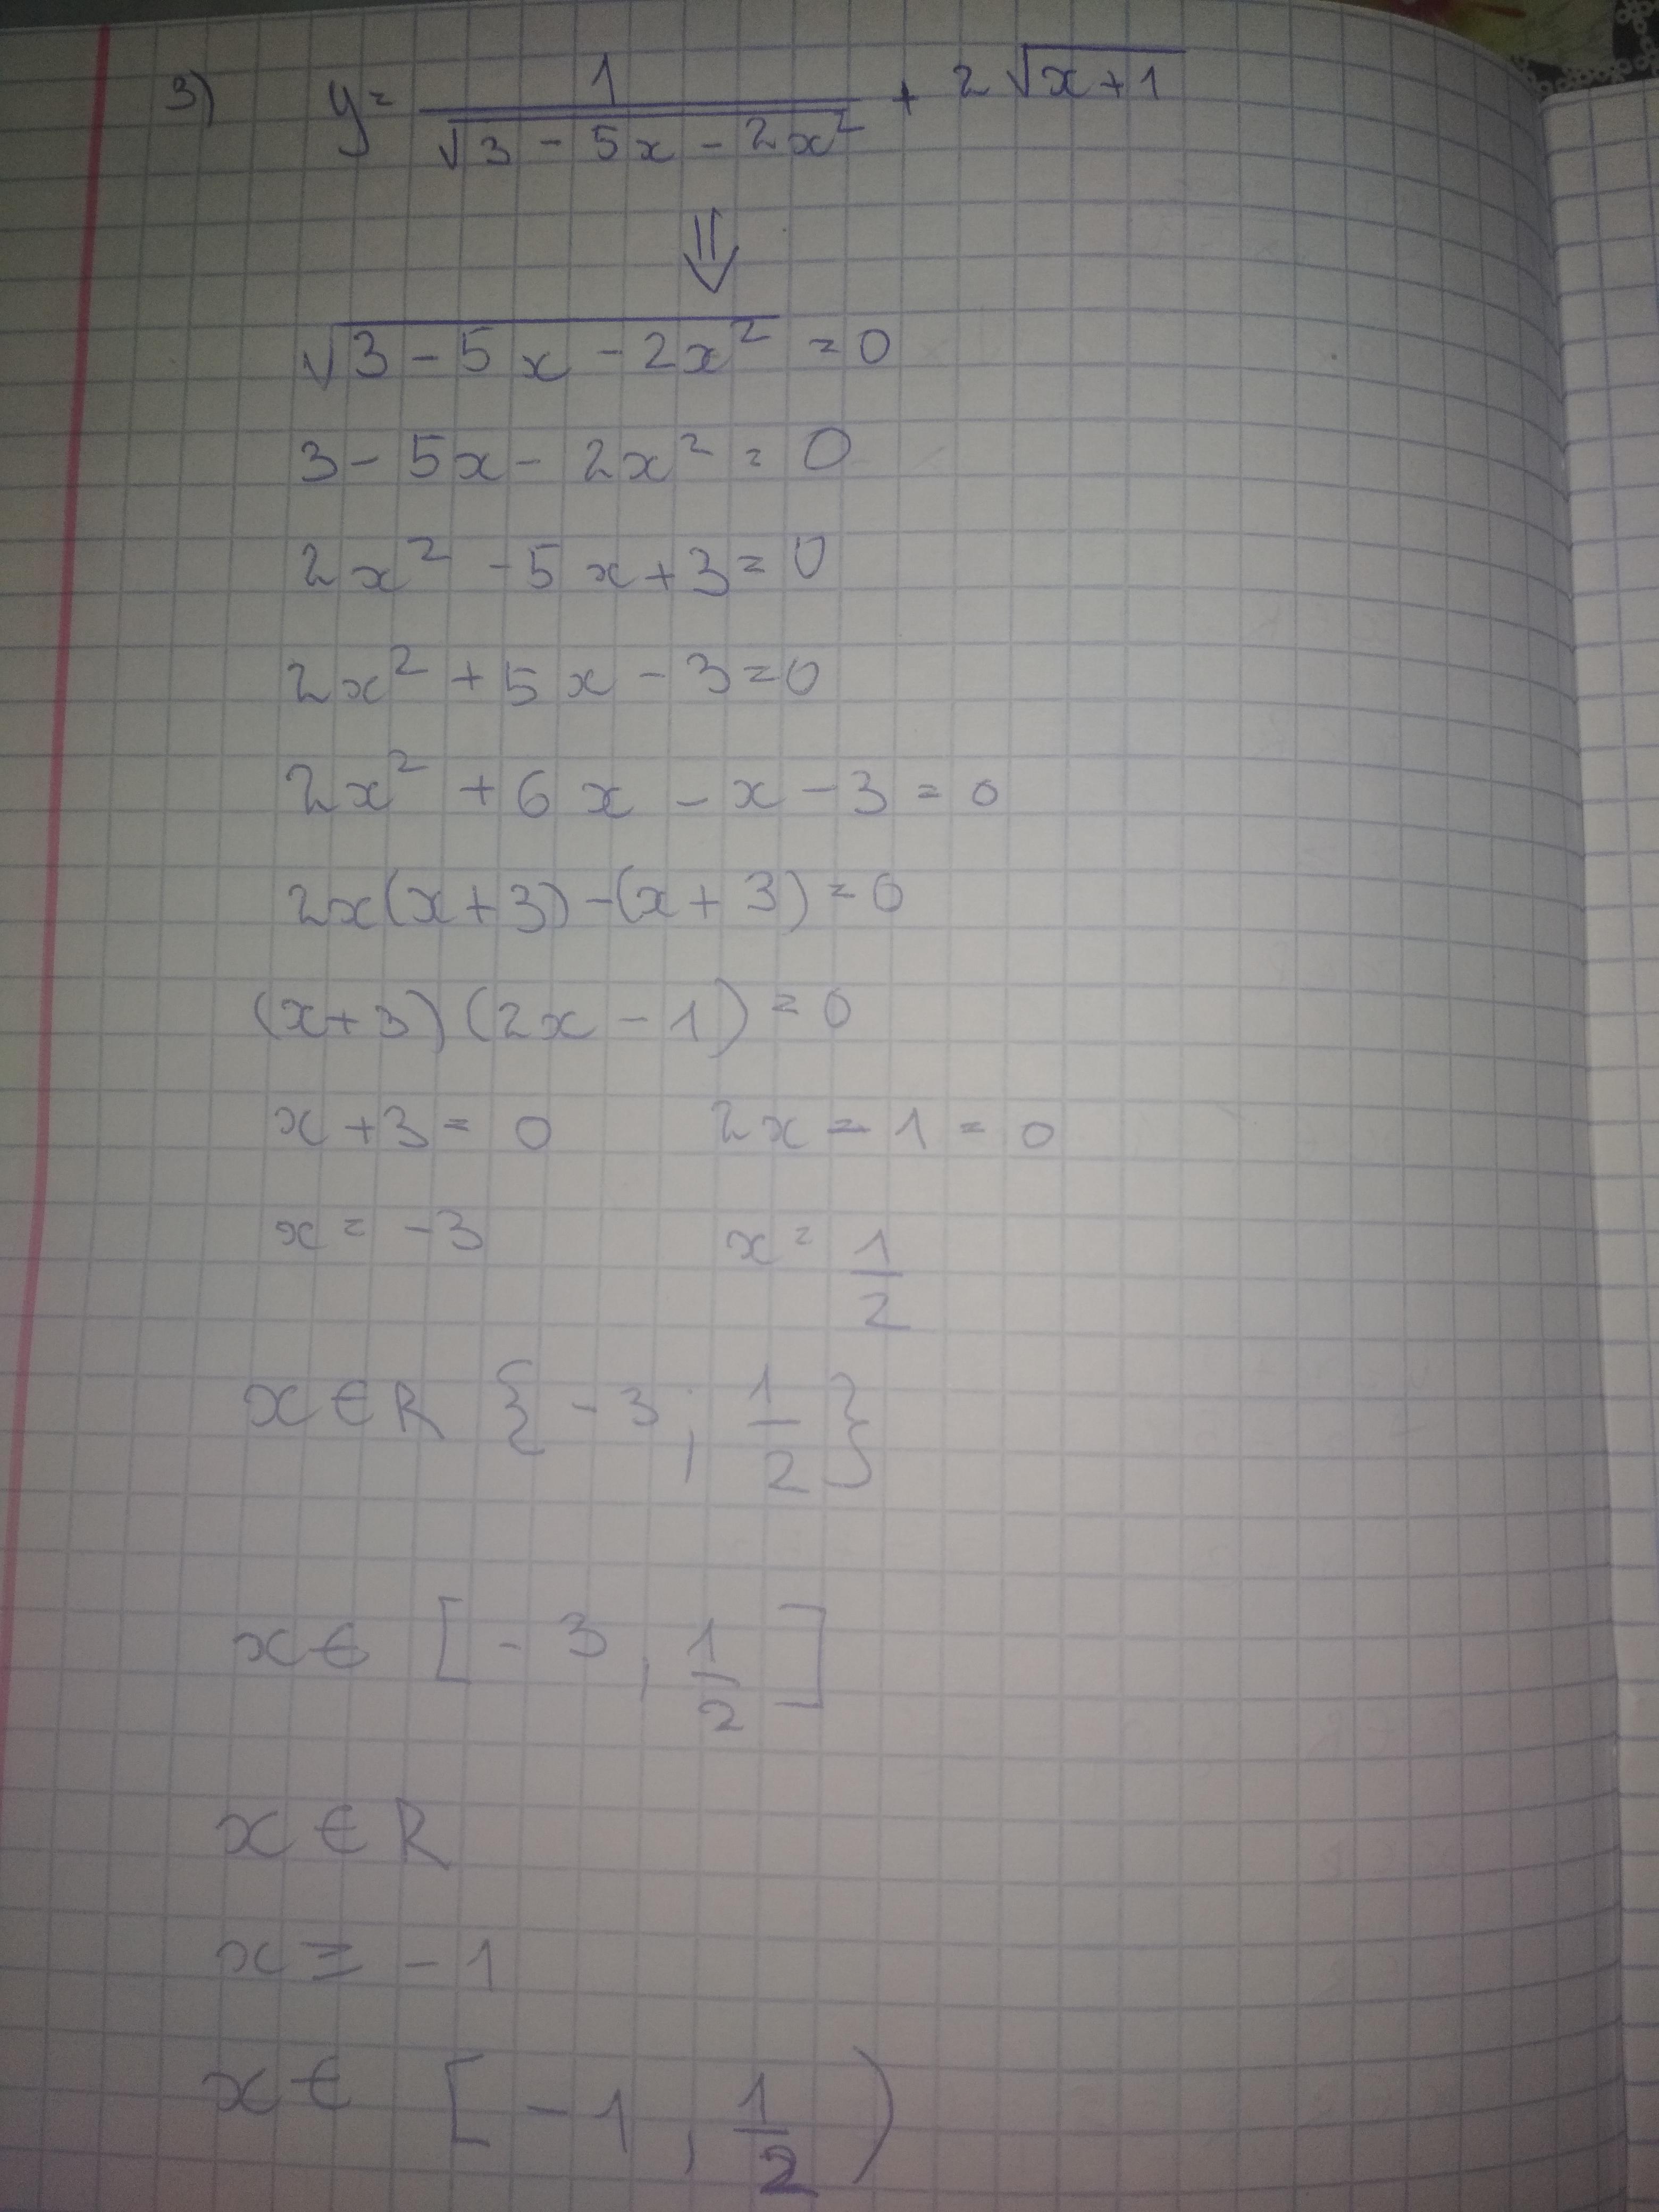 3) y = 1/√(3 - 5x - 2x²) + 2√(x+1)
⇓
√(3 - 5x - 2x²) = 0
3 - 5x - 2x² = 0
2x² - 5x + 3 = 0
2x² + 5x - 3 = 0
2x² + 6x - x - 3 = 0
2x(x+3) - (x+3) = 0
(x+3)(2x - 1) = 0
x + 3 = 0 2x - 1 = 0
x = -3 x = 1/2
x ∈ R {-3; 1/2}
x ∈ [-3, 1/2]
x ∈ R
x ≥ -1
x ∈ [-1, 1/2)